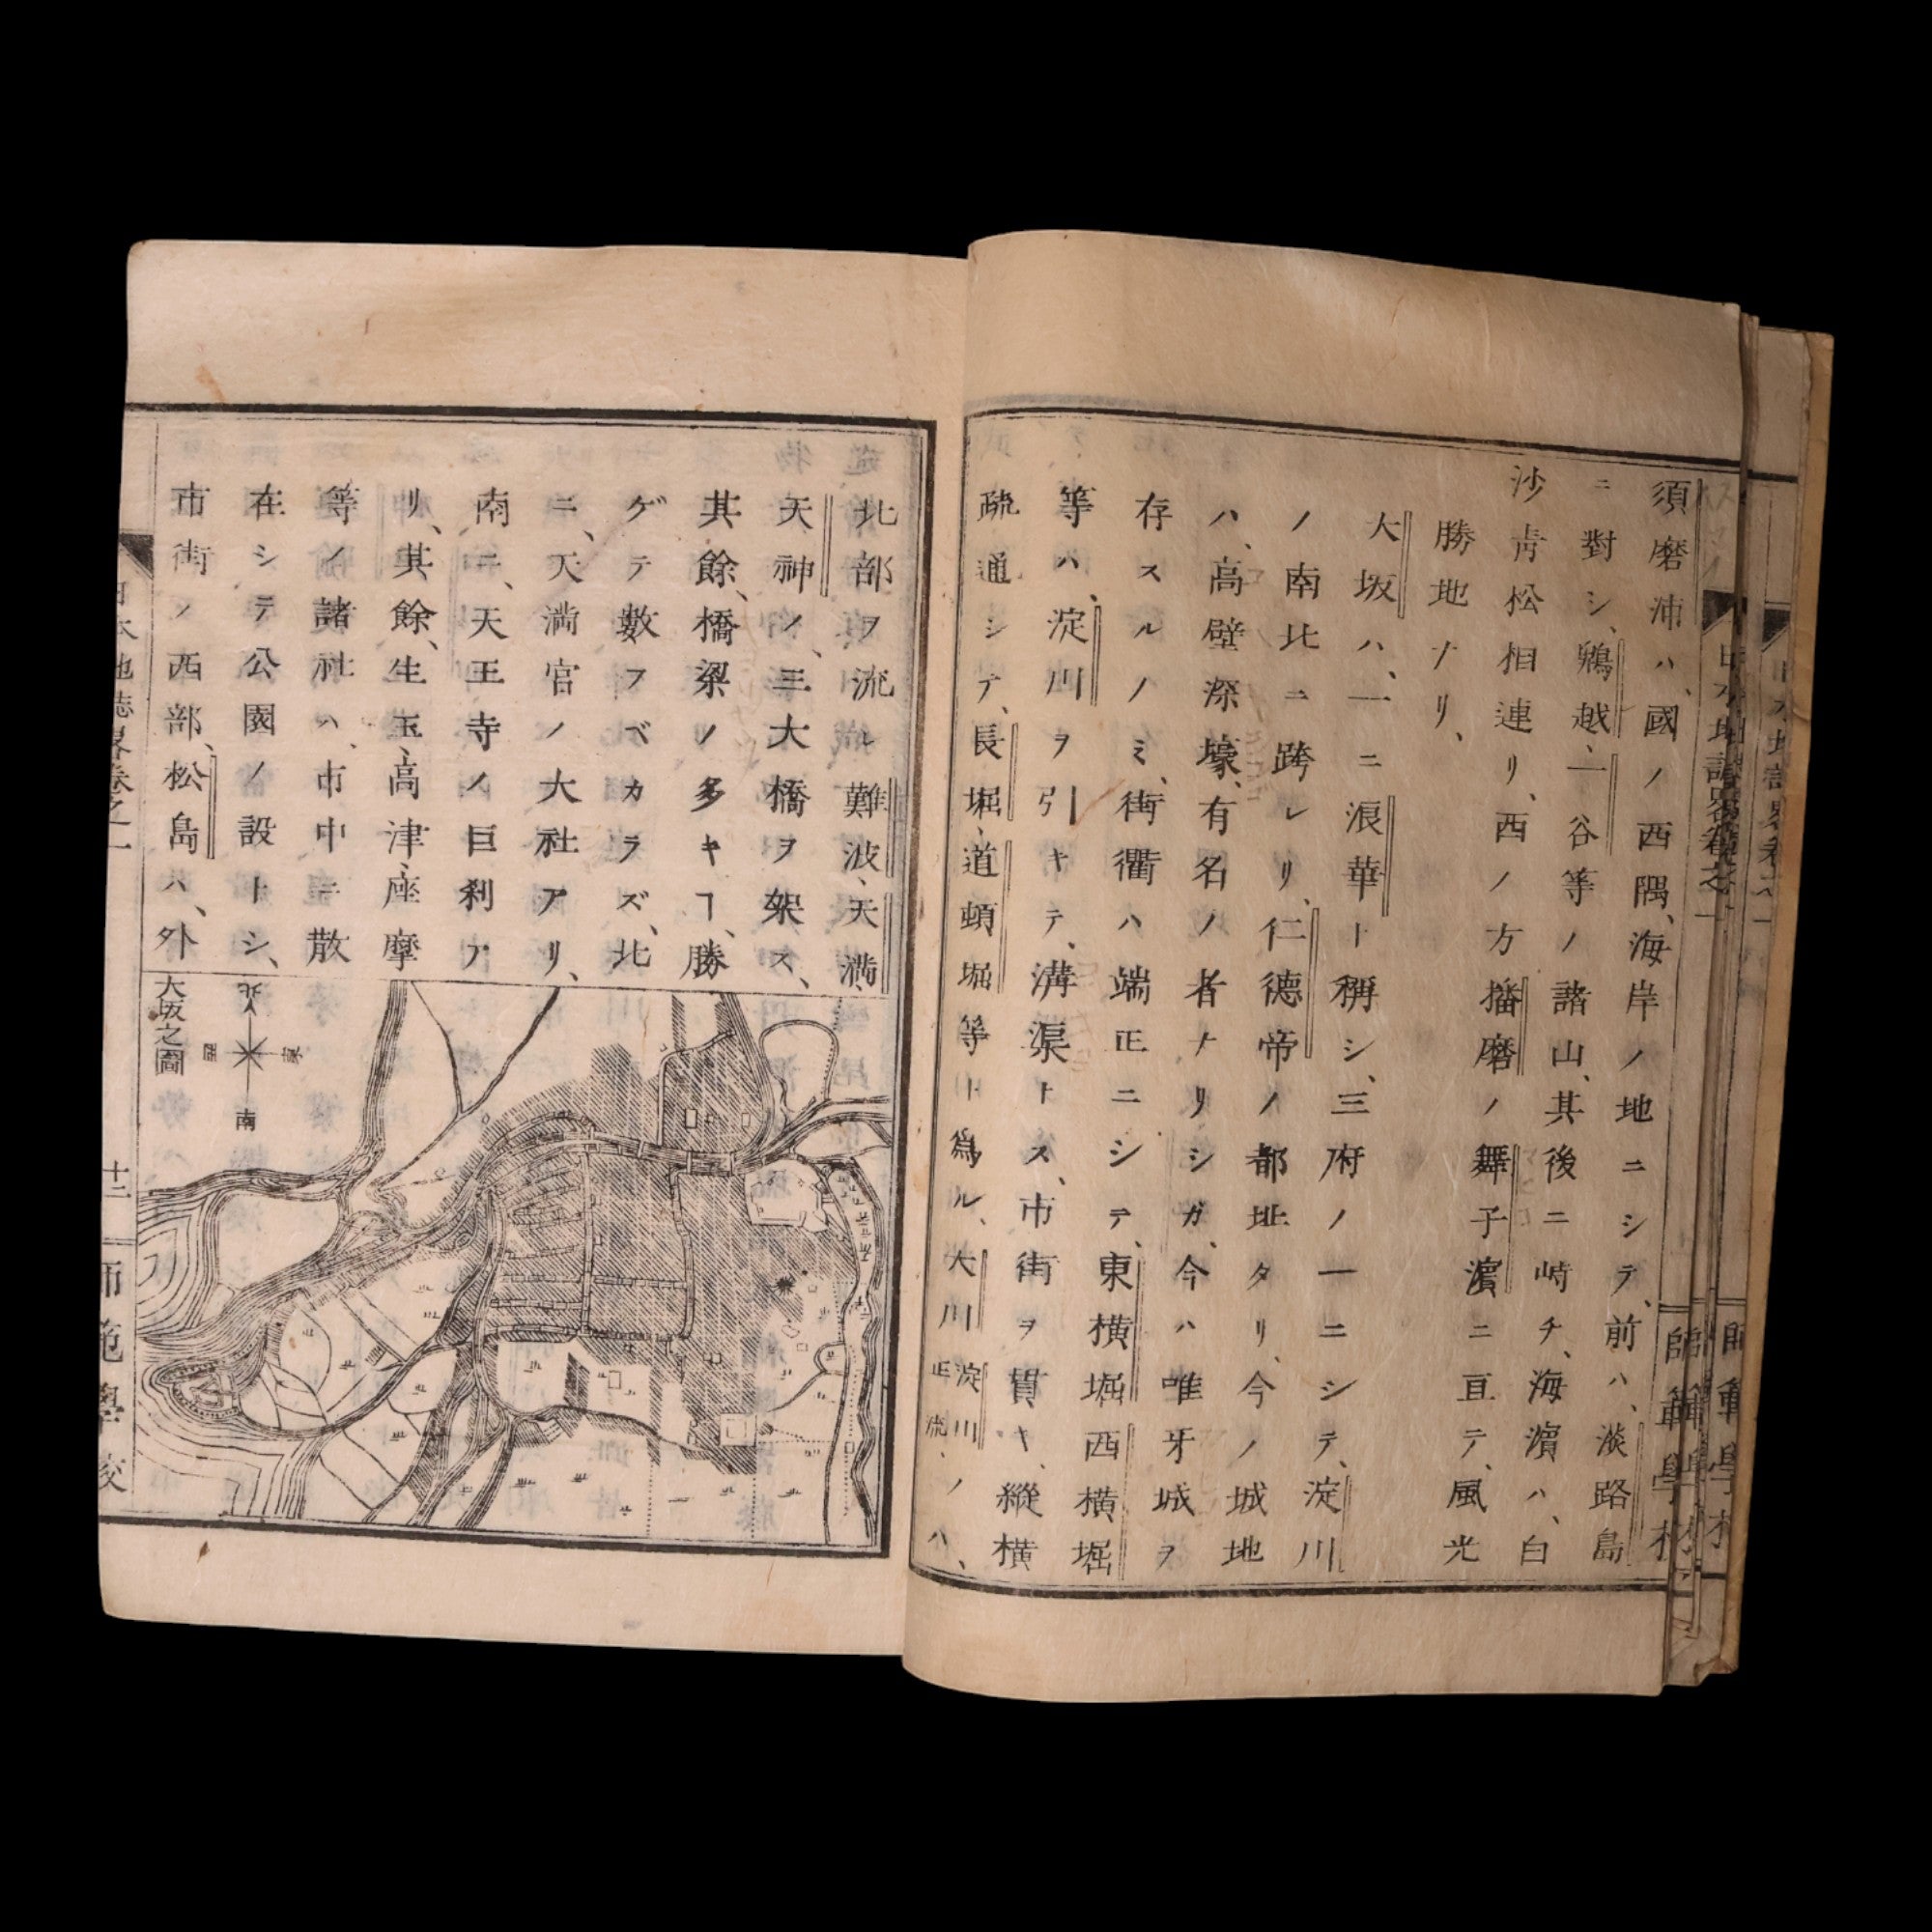 須磨浦ハ、國ノ西隅、海岸ノ地ニシテ、前ハ、淡路島
ニ對シ、鵯越、一谷等ノ諸山、其後ニ峙チ、海濵ハ、白
沙靑松相連リ、西ノ方播磨ノ舞子濵ニ亘テ、風光
勝地ナリ、
大坂ハ、一ニ浪華ト稱シ、三府ノ一ニシテ、淀川
ノ南北ニ跨レリ、仁德帝ノ都址タリ、今ノ城地
ハ、高壁深壕、有名ノ者ナリシガ、今ハ唯牙城ヲ
存スルノミ、街衢ハ端正ニシテ、東横堀西横堀
等ハ、淀川ヲ引キテ、溝渠トス、市街ヲ貫キ、縱横
疏通シテ、長堀、道頓堀等ト爲ル、大川淀川正流、ノハ、
北部ヲ流レ難波、天満、
天神ノ、三大橋ヲ架ス、
其餘、橋梁ノ多キヿ、勝
ゲテ數フベカラズ、北
ニ、天満宮ノ大社アリ、
南ニ、天王寺ノ巨刹ア
リ、其餘、生玉、高津、座摩
等ノ諸社ハ、市中ニ散
在シテ公園ノ設トシ、
市街ノ西部、松島ハ、外
大坂之圖
北
東
西
南
日本地誌畧卷之一
十二
師範學校